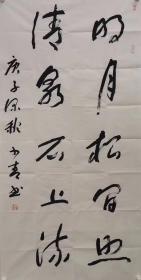 明月松间照
清泉石上流
庚子深秋 少青书